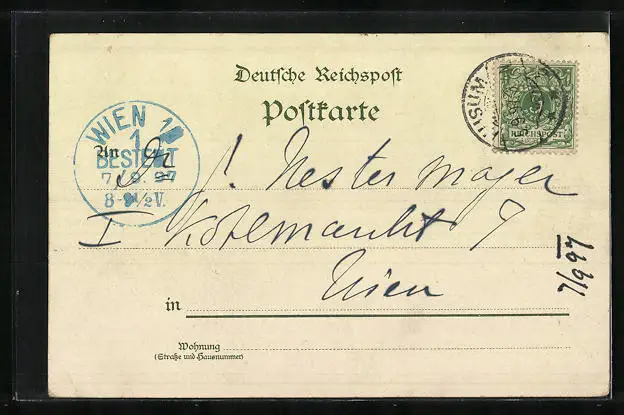 Deutsche Reichspost
Postkarte
HUSUM
REICHSPOST
WIEN 1
1
BESTELLT
7/9.97
8-9½V.
An Dr
Nestor Mayer
I Kohlmarkt 7
Wien
in
Wohnung
(Straße und Hausnummer)
7/9 97